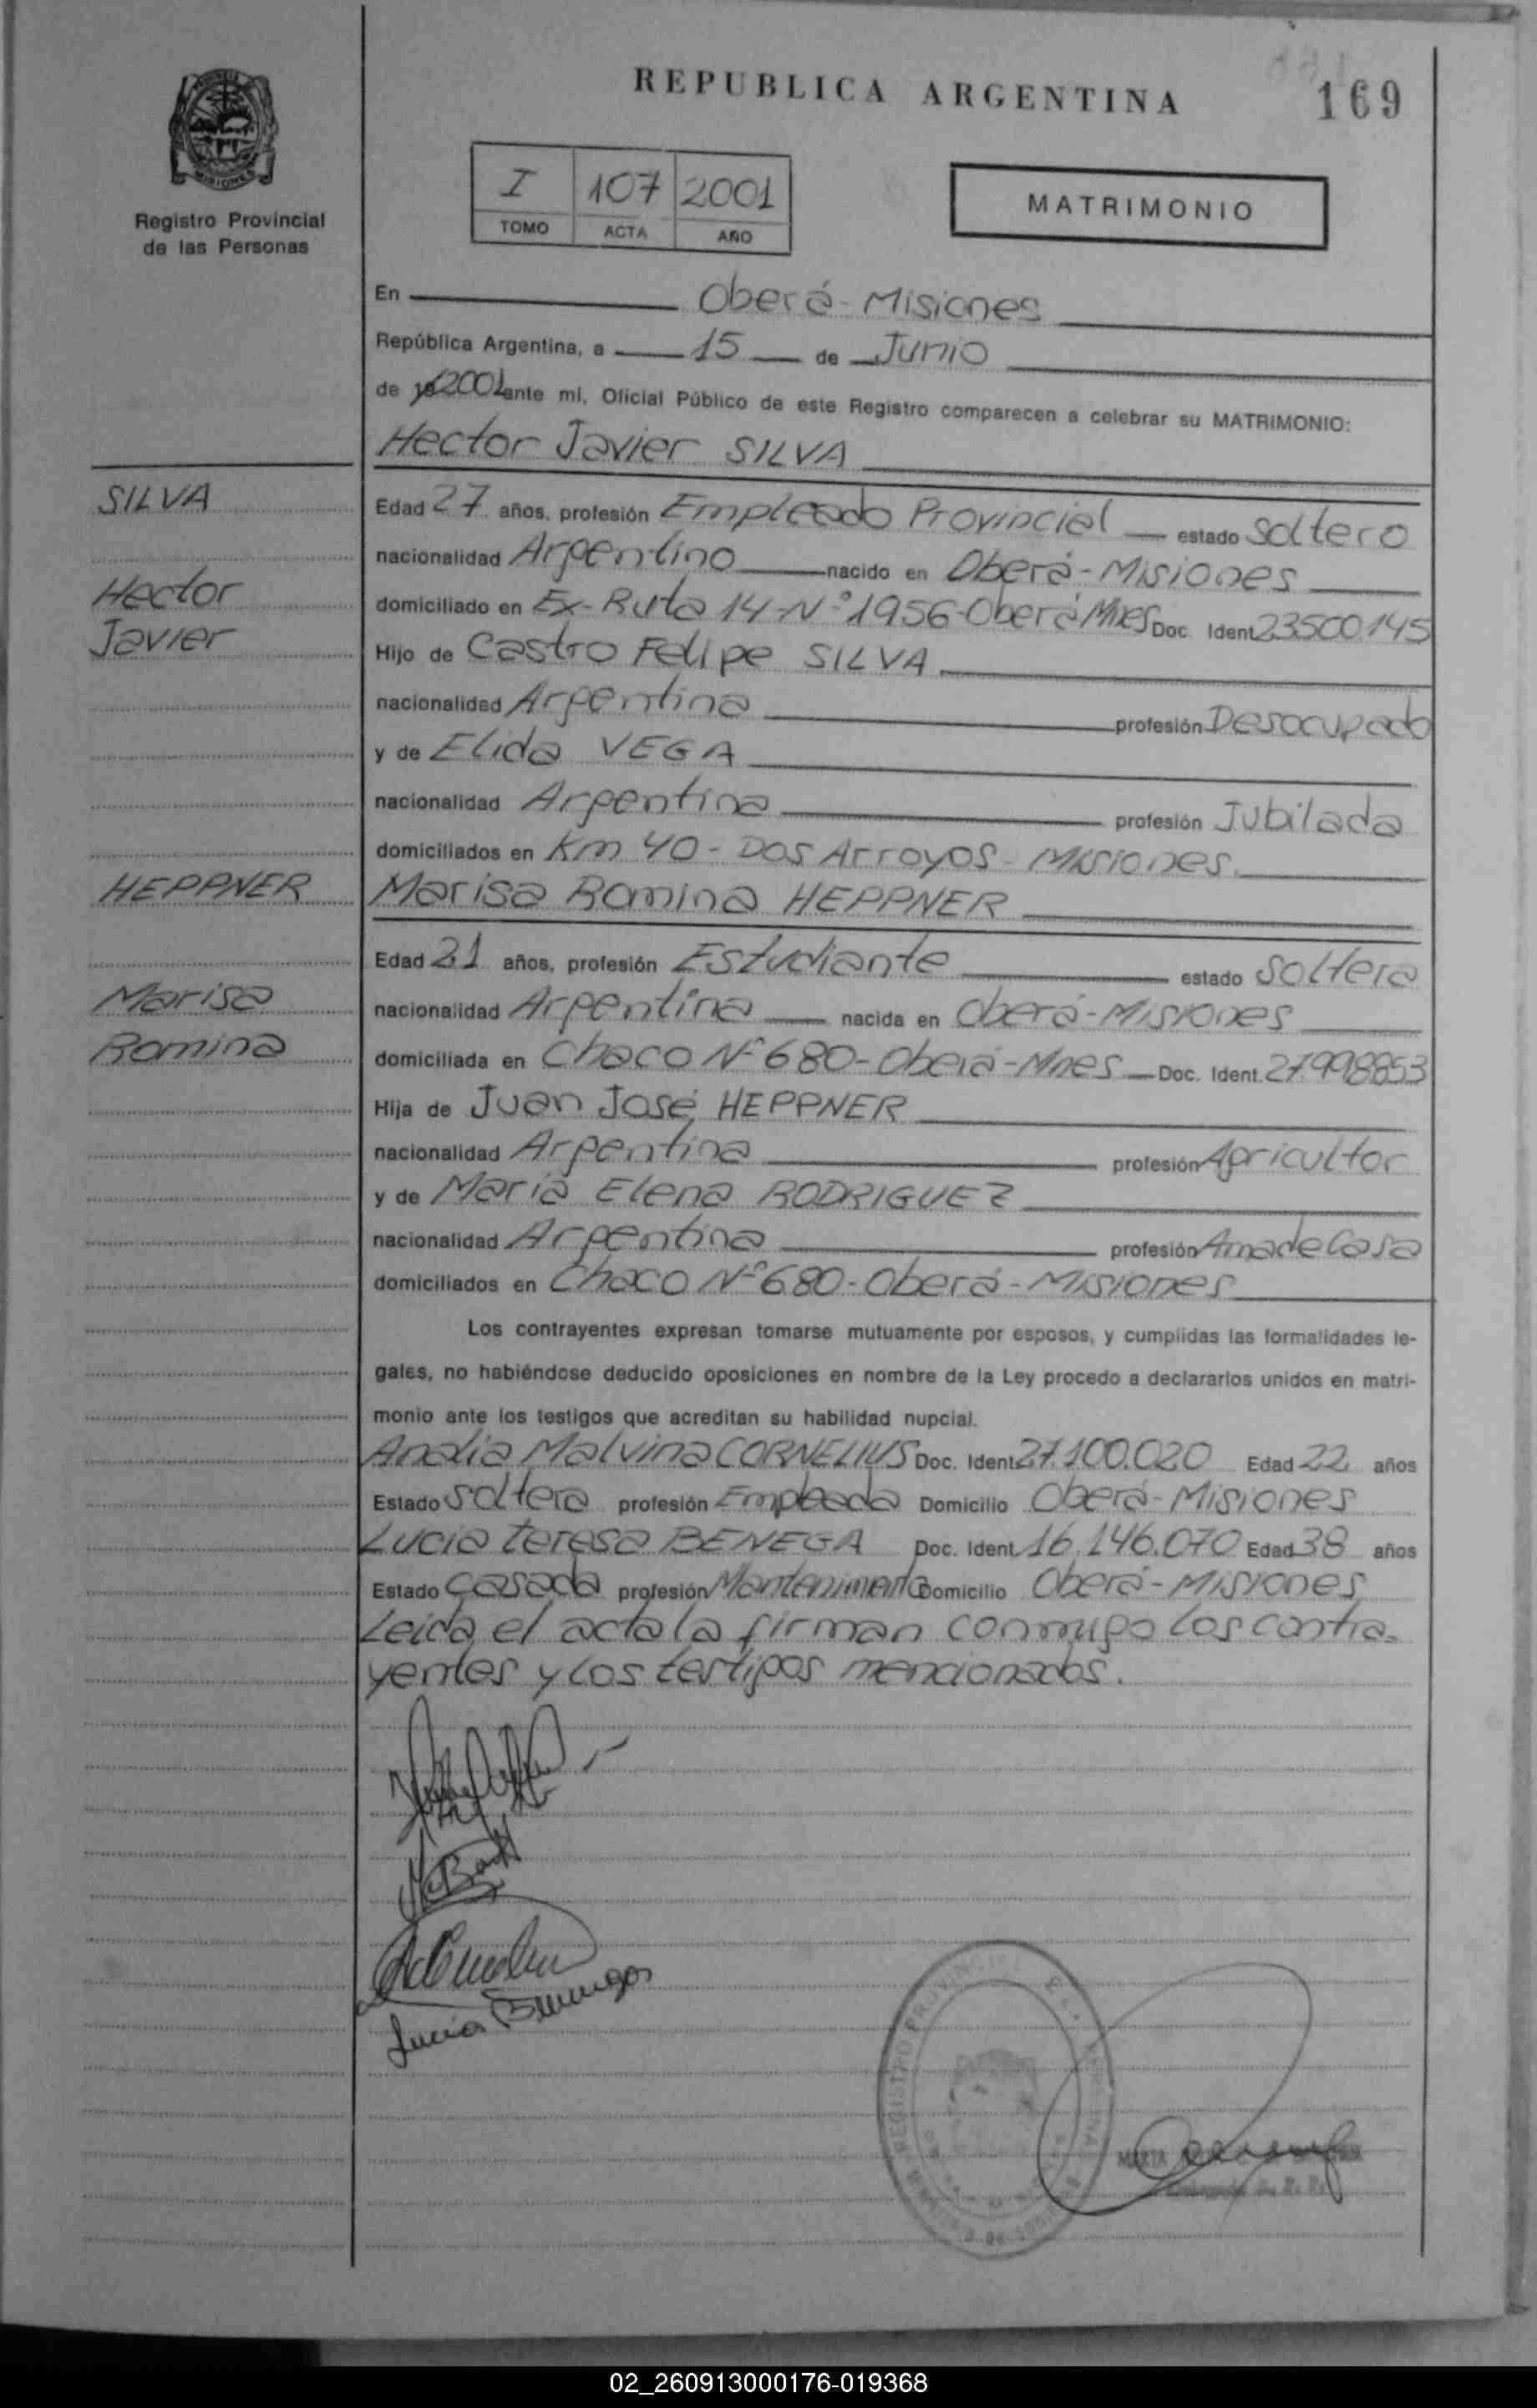 REPUBLICA ARGENTINA
169
MISIONES
Registro Provincial
de las Personas
I 107 2001
TOMO ACTA AÑO
MATRIMONIO
En Oberá - Misiones
República Argentina, a 15 de Junio
de 19 2001 ante mi, Oficial Público de este Registro comparecen a celebrar su MATRIMONIO:
Hector Javier SILVA
SILVA
Edad 27 años, profesión Empleado Provincial estado Soltero
nacionalidad Argentino nacido en Oberá - Misiones
Hector
domiciliado en Ex-Ruta 14-Nº 1956-Oberá Mnes Doc. Ident. 23500145
Javier
Hijo de Castro Felipe SILVA
nacionalidad Argentina profesión Desocupado
y de Elida VEGA
nacionalidad Argentina profesión Jubilada
domiciliados en Km 40 - Dos Arroyos - Misiones.
HEPPNER
Marisa Romina HEPPNER
Edad 21 años, profesión Estudiante estado Soltera
Marisa
nacionalidad Argentina nacida en Oberá - Misiones
Romina
domiciliada en Chaco Nº 680-Oberá-Mnes Doc. Ident. 27.998853
Hija de Juan José HEPPNER
nacionalidad Argentina profesión Agricultor
y de María Elena RODRIGUEZ
nacionalidad Argentina profesión Ama de Casa
domiciliados en Chaco Nº 680-Oberá - Misiones
Los contrayentes expresan tomarse mutuamente por esposos, y cumplidas las formalidades le-
gales, no habiéndose deducido oposiciones en nombre de la Ley procedo a declararlos unidos en matri-
monio ante los testigos que acreditan su habilidad nupcial.
Analia Malvina CORNELIUS Doc. Ident. 27.100.020 Edad 22 años
Estado Soltera profesión Empleada Domicilio Oberá - Misiones
Lucia Teresa BENEGA Doc. Ident. 16.146.070 Edad 38 años
Estado Casada profesión Mantenimento Domicilio Oberá - Misiones
Leida el acta la firman conmigo los contra-
yentes y los testigos mencionados.
Lucia
REGISTRO PROVINCIAL
MARTA
02_260913000176-019368